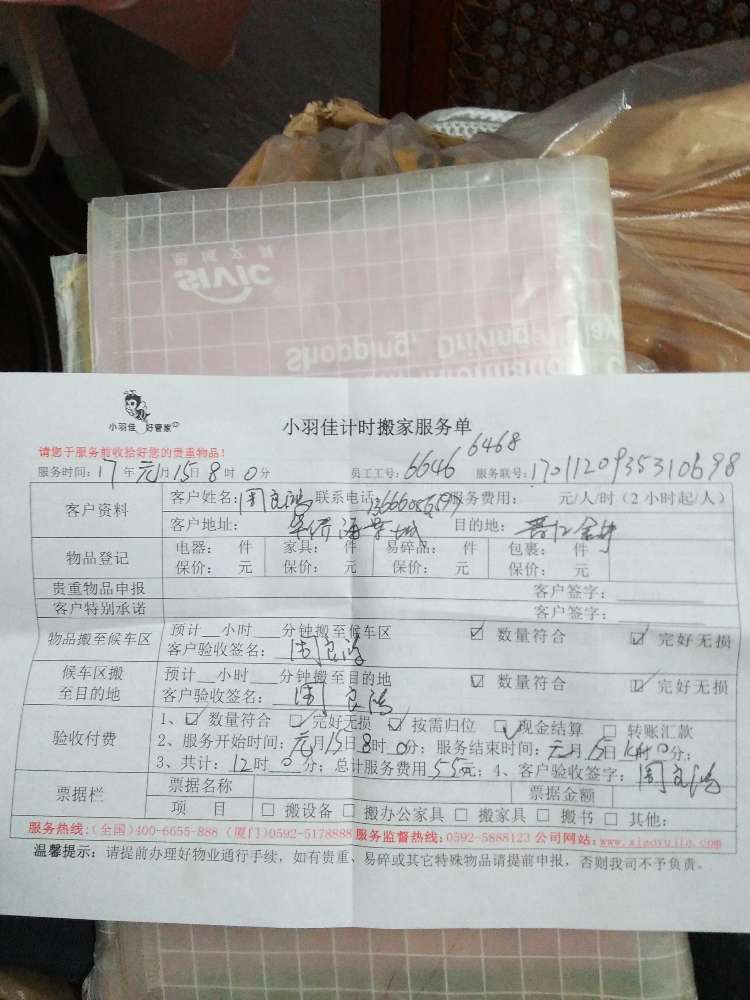 SIVIC
Shopping, Driving,
小羽佳 好管家
小羽佳计时搬家服务单
请您于服务前收拾好您的贵重物品!
6468
服务时间:17年元月15日8时0分 员工工号:6646 服务联号:17011209353310698
客户资料
客户姓名:周良鸿 联系电话: 服务费用: 元/人/时(2小时起/人)
客户地址:华侨海景城 目的地:晋江金井
物品登记
电器: 件 家具: 件 易碎品: 件 包裹: 件
保价: 元 保价: 元 保价: 元 保价: 元
贵重物品申报 客户签字:
客户特别承诺 客户签字:
物品搬至候车区
预计__小时___分钟搬至候车区 ☑ 数量符合 ☑ 完好无损
客户验收签名:周良鸿
候车区搬至目的地
预计__小时___分钟搬至目的地 ☑ 数量符合 ☑ 完好无损
客户验收签名:周良鸿
验收付费
1、☑ 数量符合 ☑ 完好无损 ☑ 按需归位 ☑ 现金结算 □ 转账汇款
2、服务开始时间:元月15日8时0分;服务结束时间:元月15日 时0分;
3、共计:12时0分;总计服务费用55元;4、客户验收签字:周良鸿
票据栏
票据名称 票据金额
项 目 □ 搬设备 □ 搬办公家具 □ 搬家具 □ 搬书 □ 其他:
服务热线:(全国)400-6655-888 (厦门)0592-5178888 服务监督热线:0592-5888123 公司网站:www.xiaoyujia.com
温馨提示:请提前办理好物业通行手续,如有贵重、易碎或其它特殊物品请提前申报,否则我司不予负责。